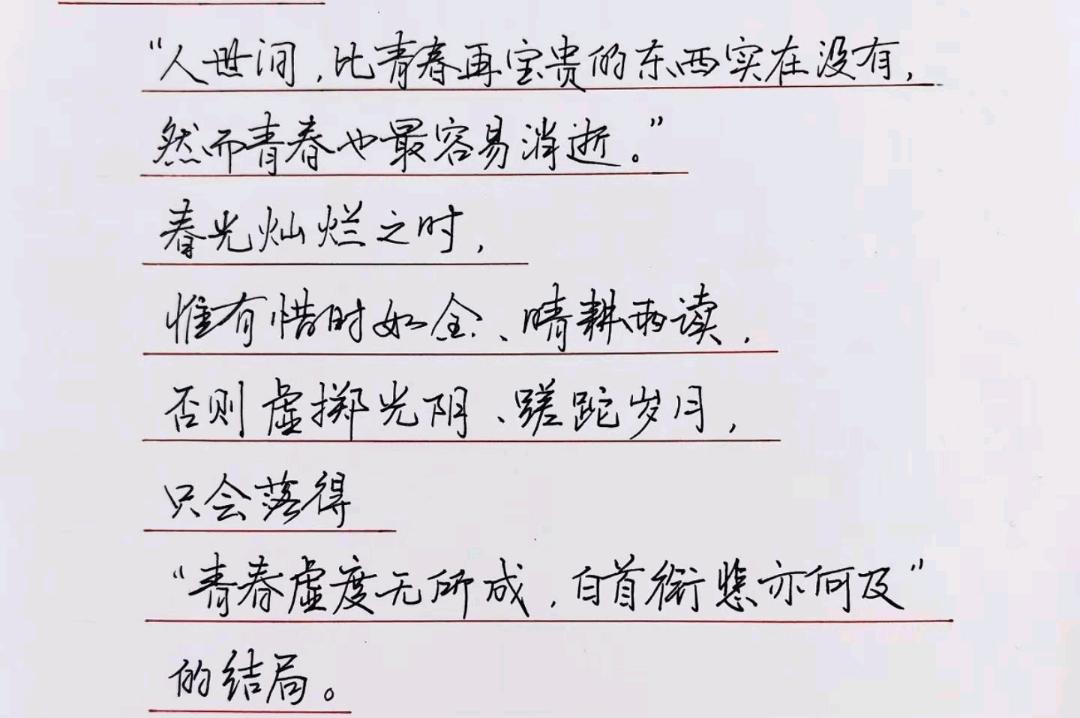 “人世间,比青春再宝贵的东西实在没有,
然而青春也最容易消逝。”
春光灿烂之时,
惟有惜时如金、晴耕雨读,
否则虚掷光阴、蹉跎岁月,
只会落得
“青春虚度无所成,白首衔悲亦何及”
的结局。